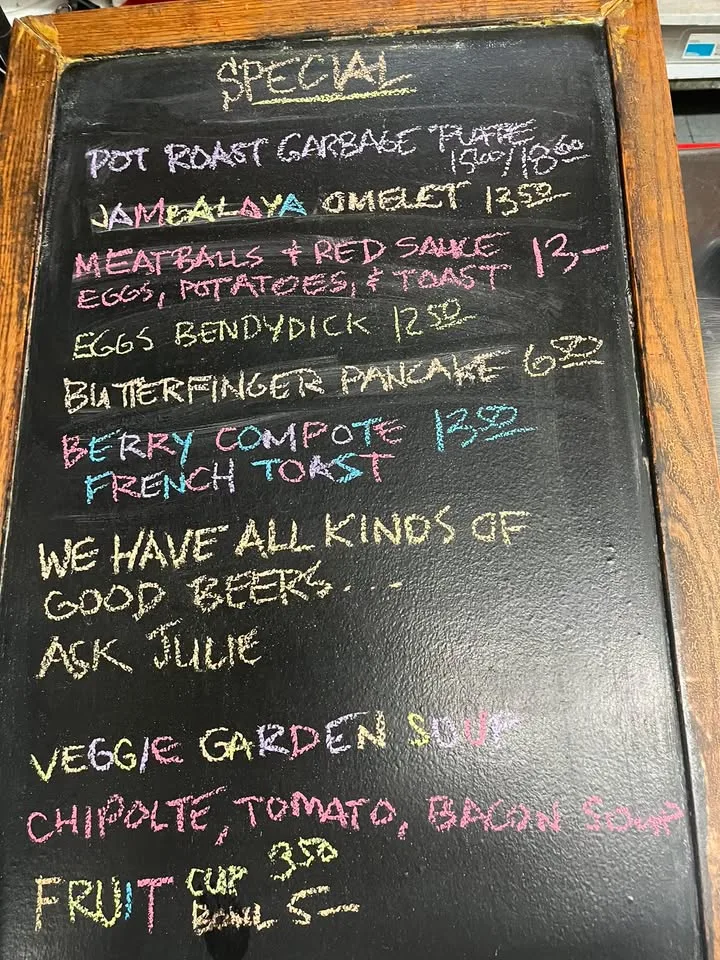 SPECIAL
POT ROAST GARBAGE PLATE
15⁰⁰/18⁰⁰
JAMBALAYA OMELET 13⁵⁰
MEATBALLS & RED SAUCE 13-
EGGS, POTATOES, & TOAST
EGGS BENDYDICK 12⁵⁰
BUTTERFINGER PANCAKE 6⁵⁰
BERRY COMPOTE 13⁵⁰
FRENCH TOAST
WE HAVE ALL KINDS OF
GOOD BEERS....
ASK JULIE
VEGGIE GARDEN SOUP
CHIPOLTE, TOMATO, BACON SOUP
FRUIT CUP 3⁵⁰
BOWL 5-